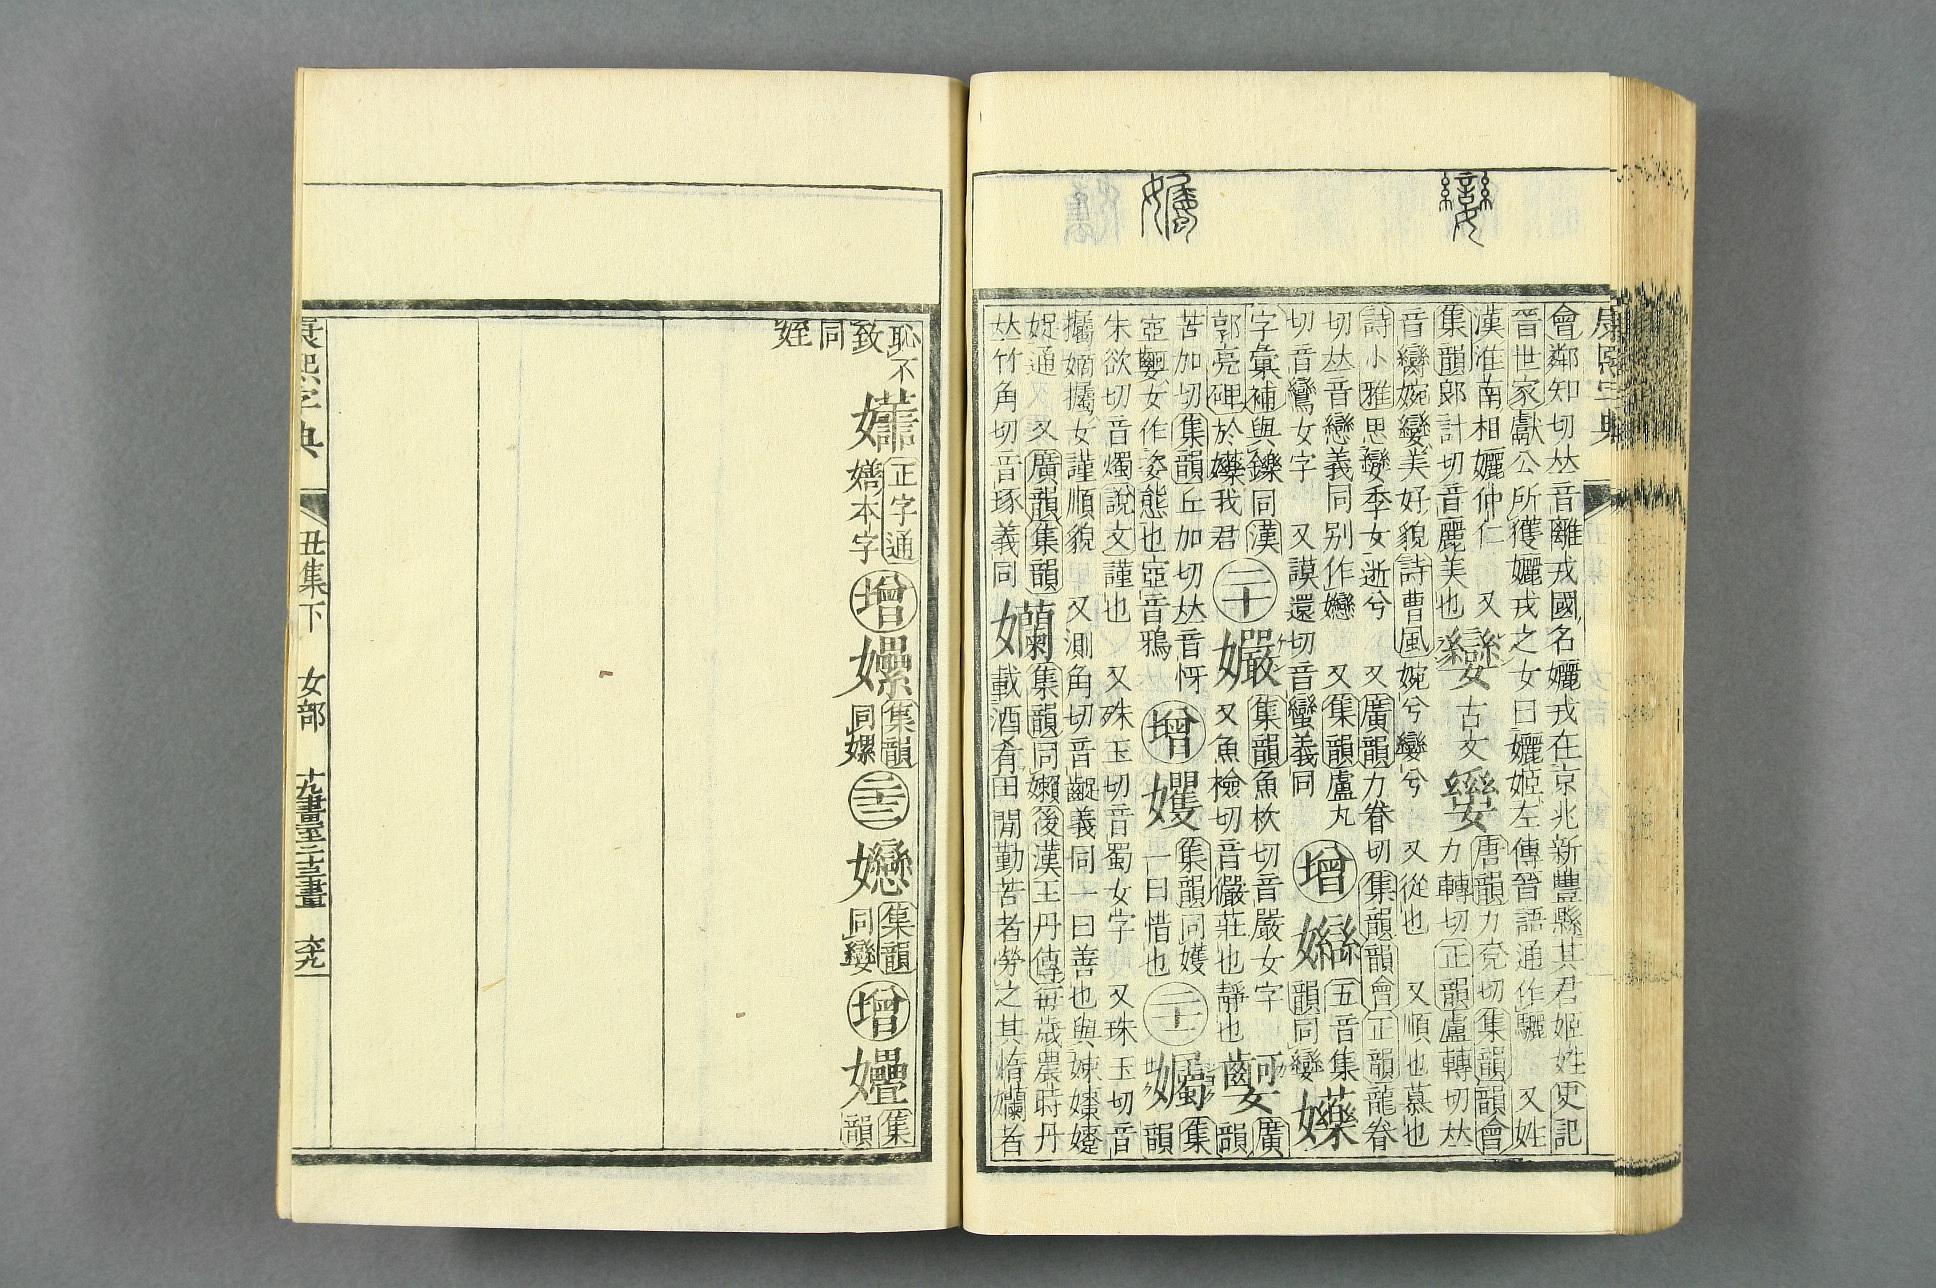 會鄰知切𠀤音離戎國名孋戎在京兆新豐縣其君姬姓史記
晉世家獻公所獲孋戎之女曰孋姬左傳晉語通作驪　又姓
漢淮南相孋仲仁　又
集韻郞計切音麗美也
孌
古文
㜻
唐韻力兗切集韻韻會
力轉切正韻盧轉切𠀤
音臠婉孌美好貌詩曹風婉兮孌兮　又從也　又順也慕也
詩小雅思孌季女逝兮　又廣韻力眷切集韻韻會正韻龍眷
切𠀤音戀義同別作戀　又集韻盧丸
切音鸞女字　又謨還切音蠻義同
增
五音集
韻同孌
字彙補與鑠同漢
郭亮碑於㜰我君
二十
孍
集韻魚杴切音嚴女字
又魚檢切音儼莊也靜也
廣
韻
苦加切集韻丘加切𠀤音呀
女作姿態也
音鴉
增
孇
集韻同嬳
一曰惜也
二十一
孎
集
韻
朱欲切音燭說文謹也　又殊玉切音蜀女字　又珠玉切音
斸孎女謹順貌　又測角切音齪義同一曰善也與娕
娖通　又廣韻集韻
𠀤竹角切音琢義同
孏
集韻同嬾後漢王丹傳每歲農時丹
載酒肴田閒勤苦者勞之其惰孏者
恥不
致
同
姪
正字通
本字
增
集韻
同嫘
二十三
戀
集韻
同孌
增
集
韻
康熙字典
丑集下
女部
十九畫至二十三畫
六九